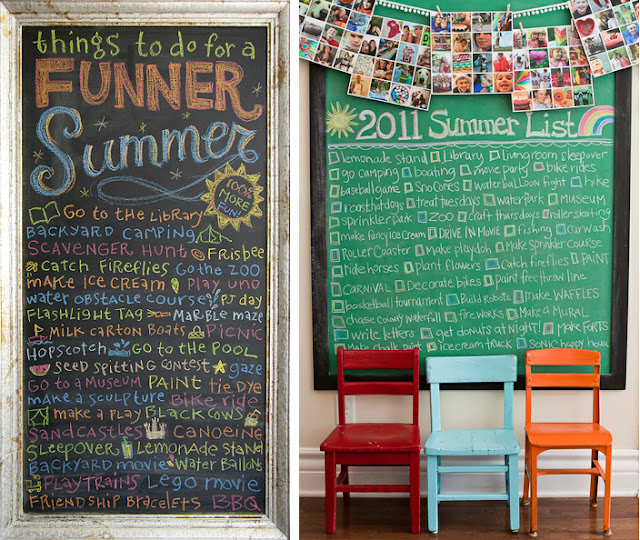 things to do for a
FUNNER
Summer
100%
MORE
Fun!
Go to the Library
BACKYARD CAMPING
SCAVENGER HUNT Frisbee
CATCH FIREFLIES Go the ZOO
MAKE ICE CREAM PLAY UNO
WATER OBSTACLE COURSES PJ DAY
FLASHLIGHT TAG MARBLE MAZE
MILK CARTON BOATS PICNIC
HOPSCOTCH GO TO THE POOL
SEED SPITTING CONTEST gaze
Go to a Museum PAINT tie DYE
MAKE A SCULPTURE Bike ride
MAKE A PLAY BLACK COWS
SANDCASTLES CANOEING
SLEEPOVER LEMONADE STAND
BACKYARD MOVIE WATER BALLONS
PLAY TRAINS LEGO MOVIE
FRIENDSHIP BRACELETS BBQ
2011 Summer List
lemonade stand Library living room sleepover
go camping boating movie party bike rides
baseball game Sno Cones water balloon fight hike
roast hot dogs treat tuesdays water park MUSEUM
sprinkler park ZOO craft thursdays roller skating
make fancy ice Cream DRIVE IN MOVIE fishing car wash
ROLLER COASTER Make playdoh Make sprinkler course
ride horses plant flowers Catch fireflies PAINT
CARNIVAL Decorate bikes Paint free throw line
basketball tournament Build Robots make WAFFLES
chase county waterfall fireworks Make a MURAL
write letters get donuts at Night! Make FORTS
Make Chalk paint icecream truck SONIC happy hour